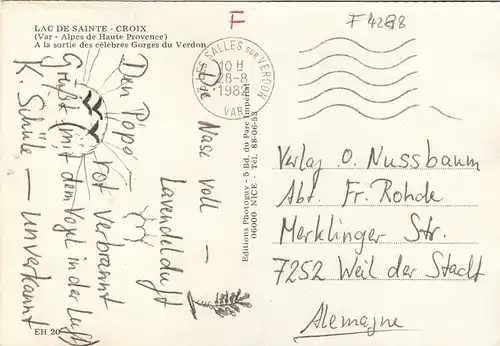 LAC DE SAINTE - CROIX
(Var - Alpes de Haute Provence)
A la sortie des célèbres Gorges du Verdon
F
F 4288
SALLES sur VERDON
10 H
28-8
1982
VAR
Die Nase voll —
Lavendelduft
Den Popo —
rot verbrannt
Grüßt (mit dem Vogel in der Luft)
K. Schüle — unverkannt
Editions Photoguy - 5 Bd. du Parc Impérial
06000 NICE - Tél. 88-06-53
Verlag O. Nussbaum
Abt. Fr. Rohde
Merklinger Str.
7252 Weil der Stadt
Alemagne
EH 20